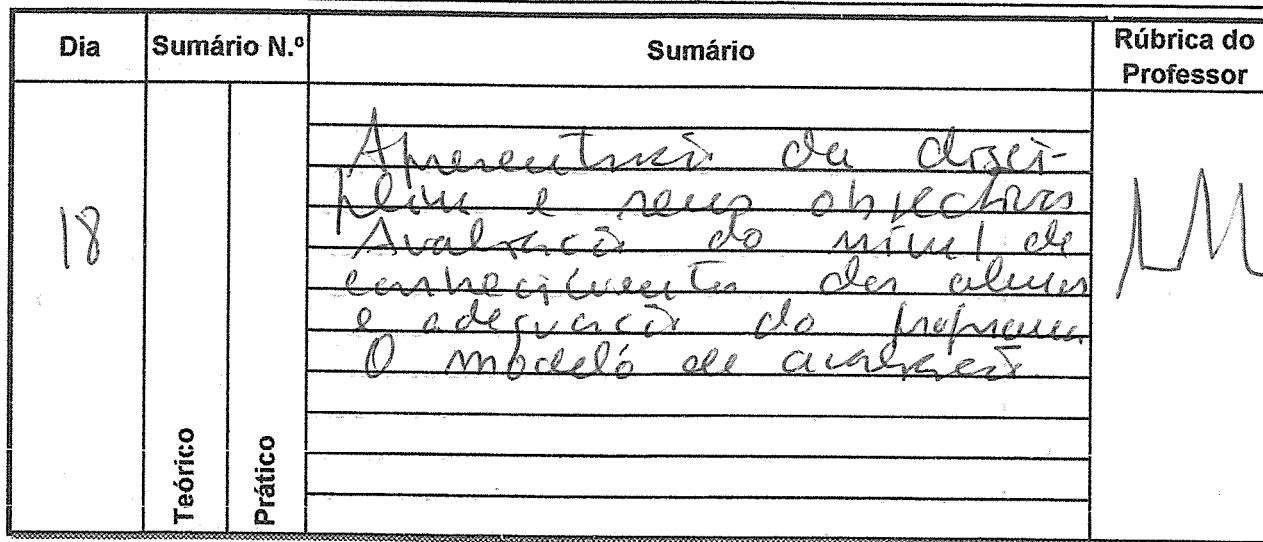 Dia
Sumário N.º
Sumário
Rúbrica do
Professor
18
Apresentação da disci-
plina e seus objectivos
Avaliação do nível de
conhecimentos dos alunos
e adequação do programa
O modelo de avaliação
Teórico
Prático